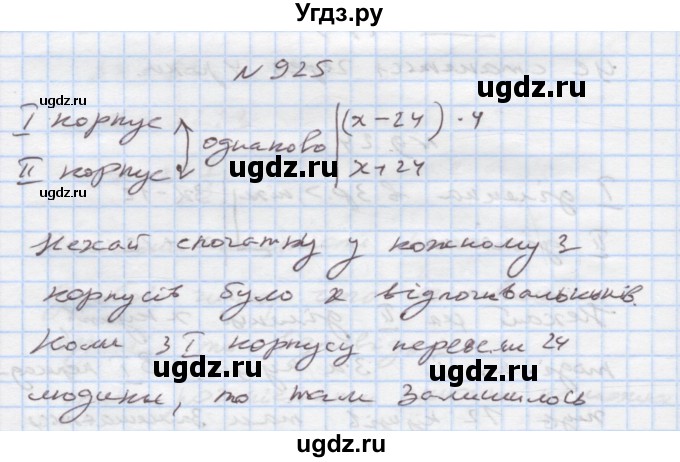 Угдз.ру
№ 925
I корпус
однаково
(x-24)·4
II корпус
x+24
Нехай спочатку у кожному з
корпусів було x відпочивальників.
Коли з I корпусу перевели 24
людини, то там залишилось
ugdz.ru
ugdz.ru
ugdz.ru
ugdz.ru
ugdz.ru
ugdz.ru
ugdz.ru
ugdz.ru
ugdz.ru
ugdz.ru
ugdz.ru